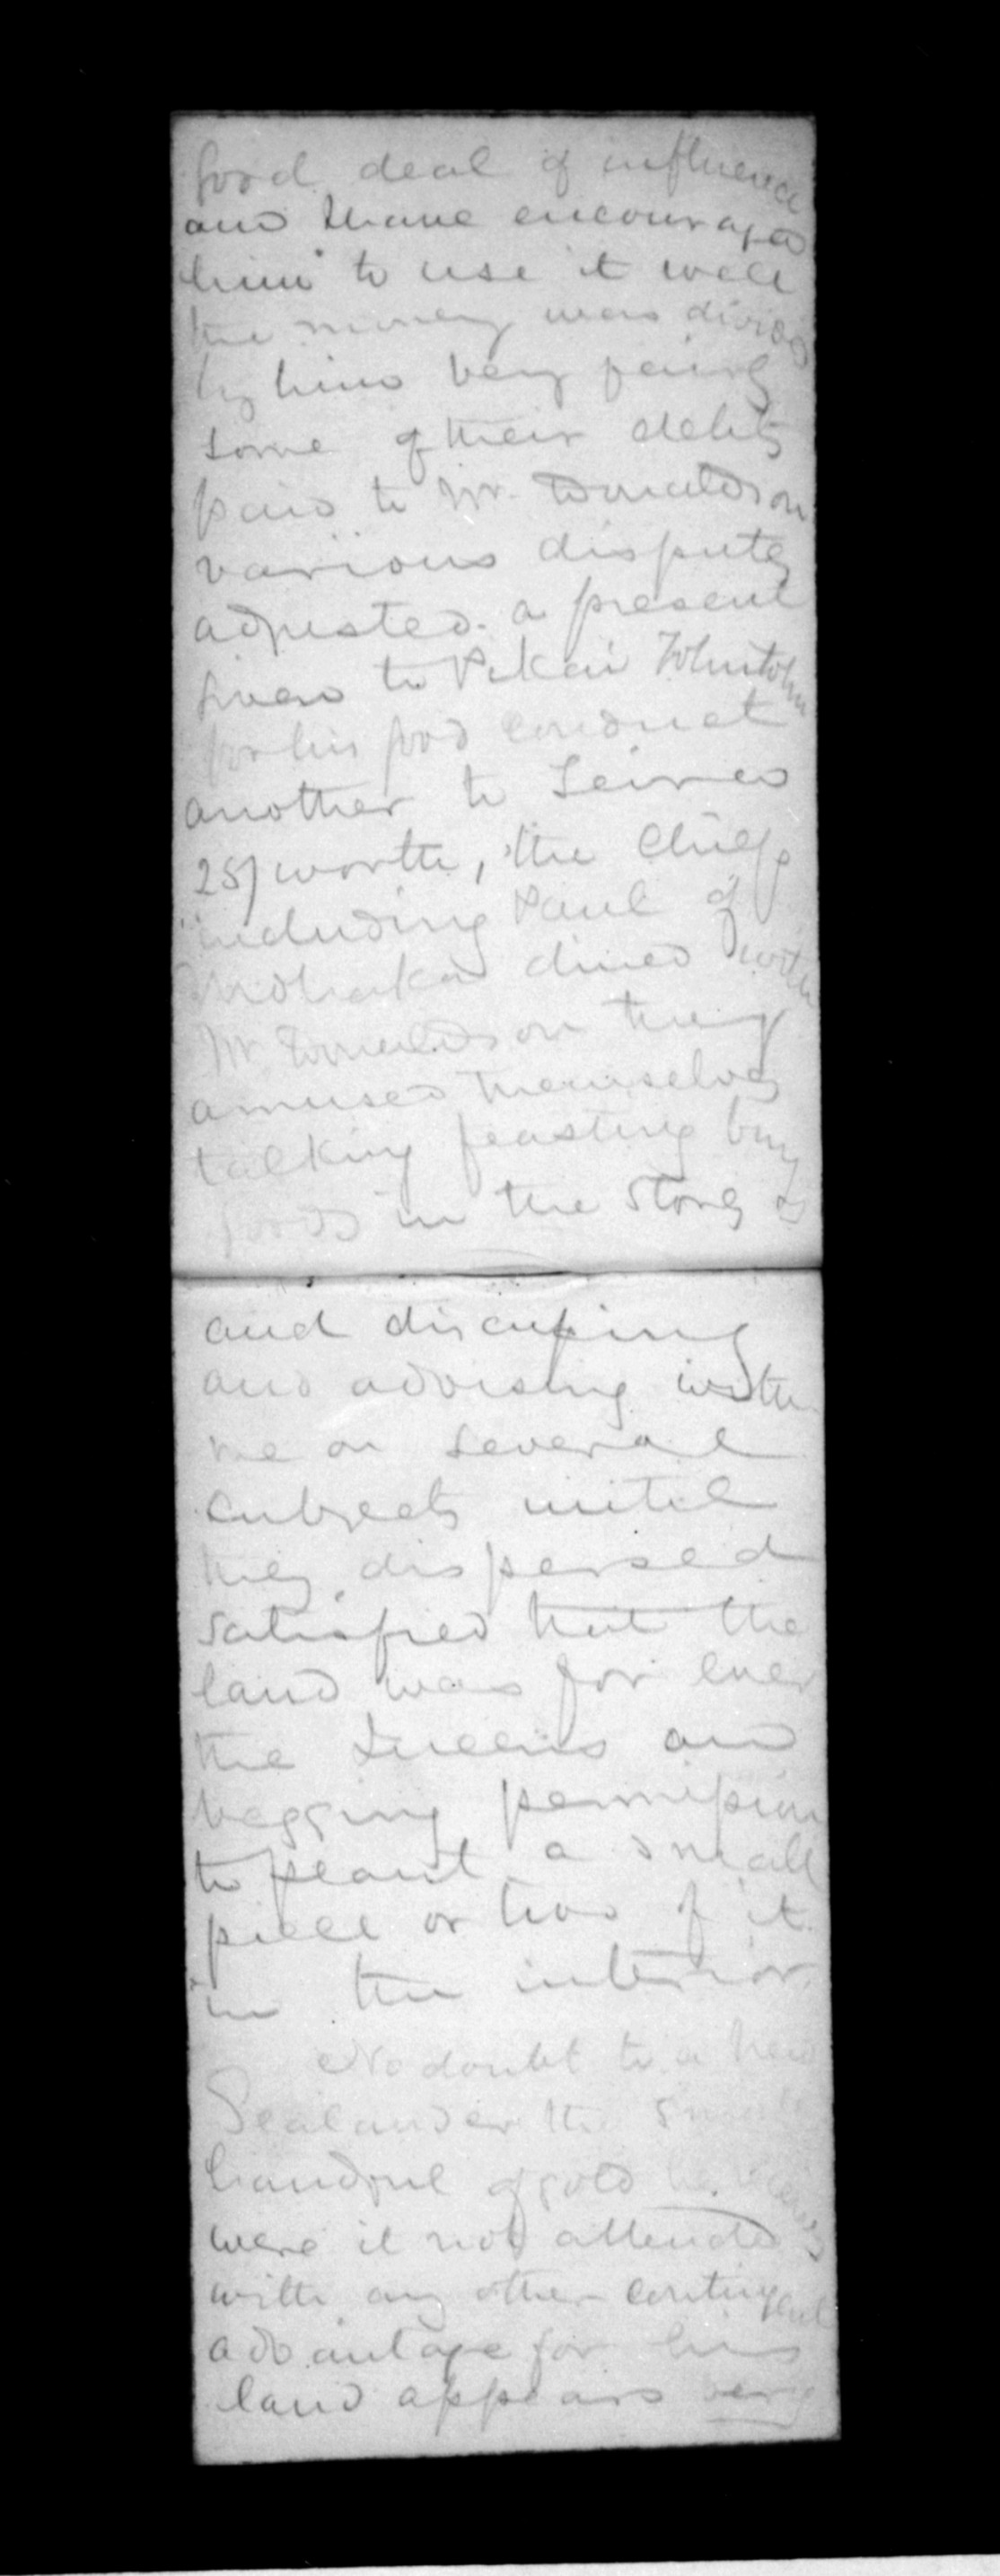 good deal of influence
and I have encouraged
him to use it well
the money was divided
by him very fairly
some of their debts
paid to Mr. Donaldson
various disputes
adjusted. a present
given to Pikai
for his good conduct
another to
25/ worth, the Chiefs
including Paul of
Mohaka dined with
Mr Donaldson they
amused themselves
talking feasting buying
goods in the Stores
and discussing
and advising with
me on several
subjects until
they dispersed
satisfied that the
land was for ever
the Queens and
begging permission
to plant a small
piece or two of it.
in the interior.
No doubt to a New
Zealander the
handful of gold he receives
were it not attended
with any other contingent
advantage for his
land appears very